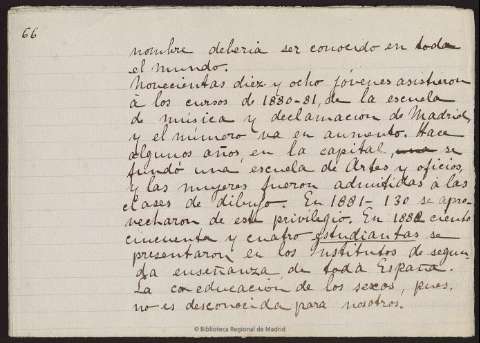 66
nombre deberia ser conocido en todo
el mundo.
Novecientas diez y ocho jóvenes asistieron
á los cursos de 1880-81, de la escuela
de música y declamacion de Madrid,
y el número va en aumento. Hace
algunos años, en la capital, se
fundó una escuela de Artes y oficios,
y las mujeres fueron admitidas á las
clases de dibujo. En 1881- 130 se apro-
vecharon de este privilegio. En 1882 ciento
cincuenta y cuatro estudiantas se
presentaron en los institutos de segun-
da enseñanza de toda España.
La co-educación de los sexos, pues,
no es desconocida para nosotros.
© Biblioteca Regional de Madrid